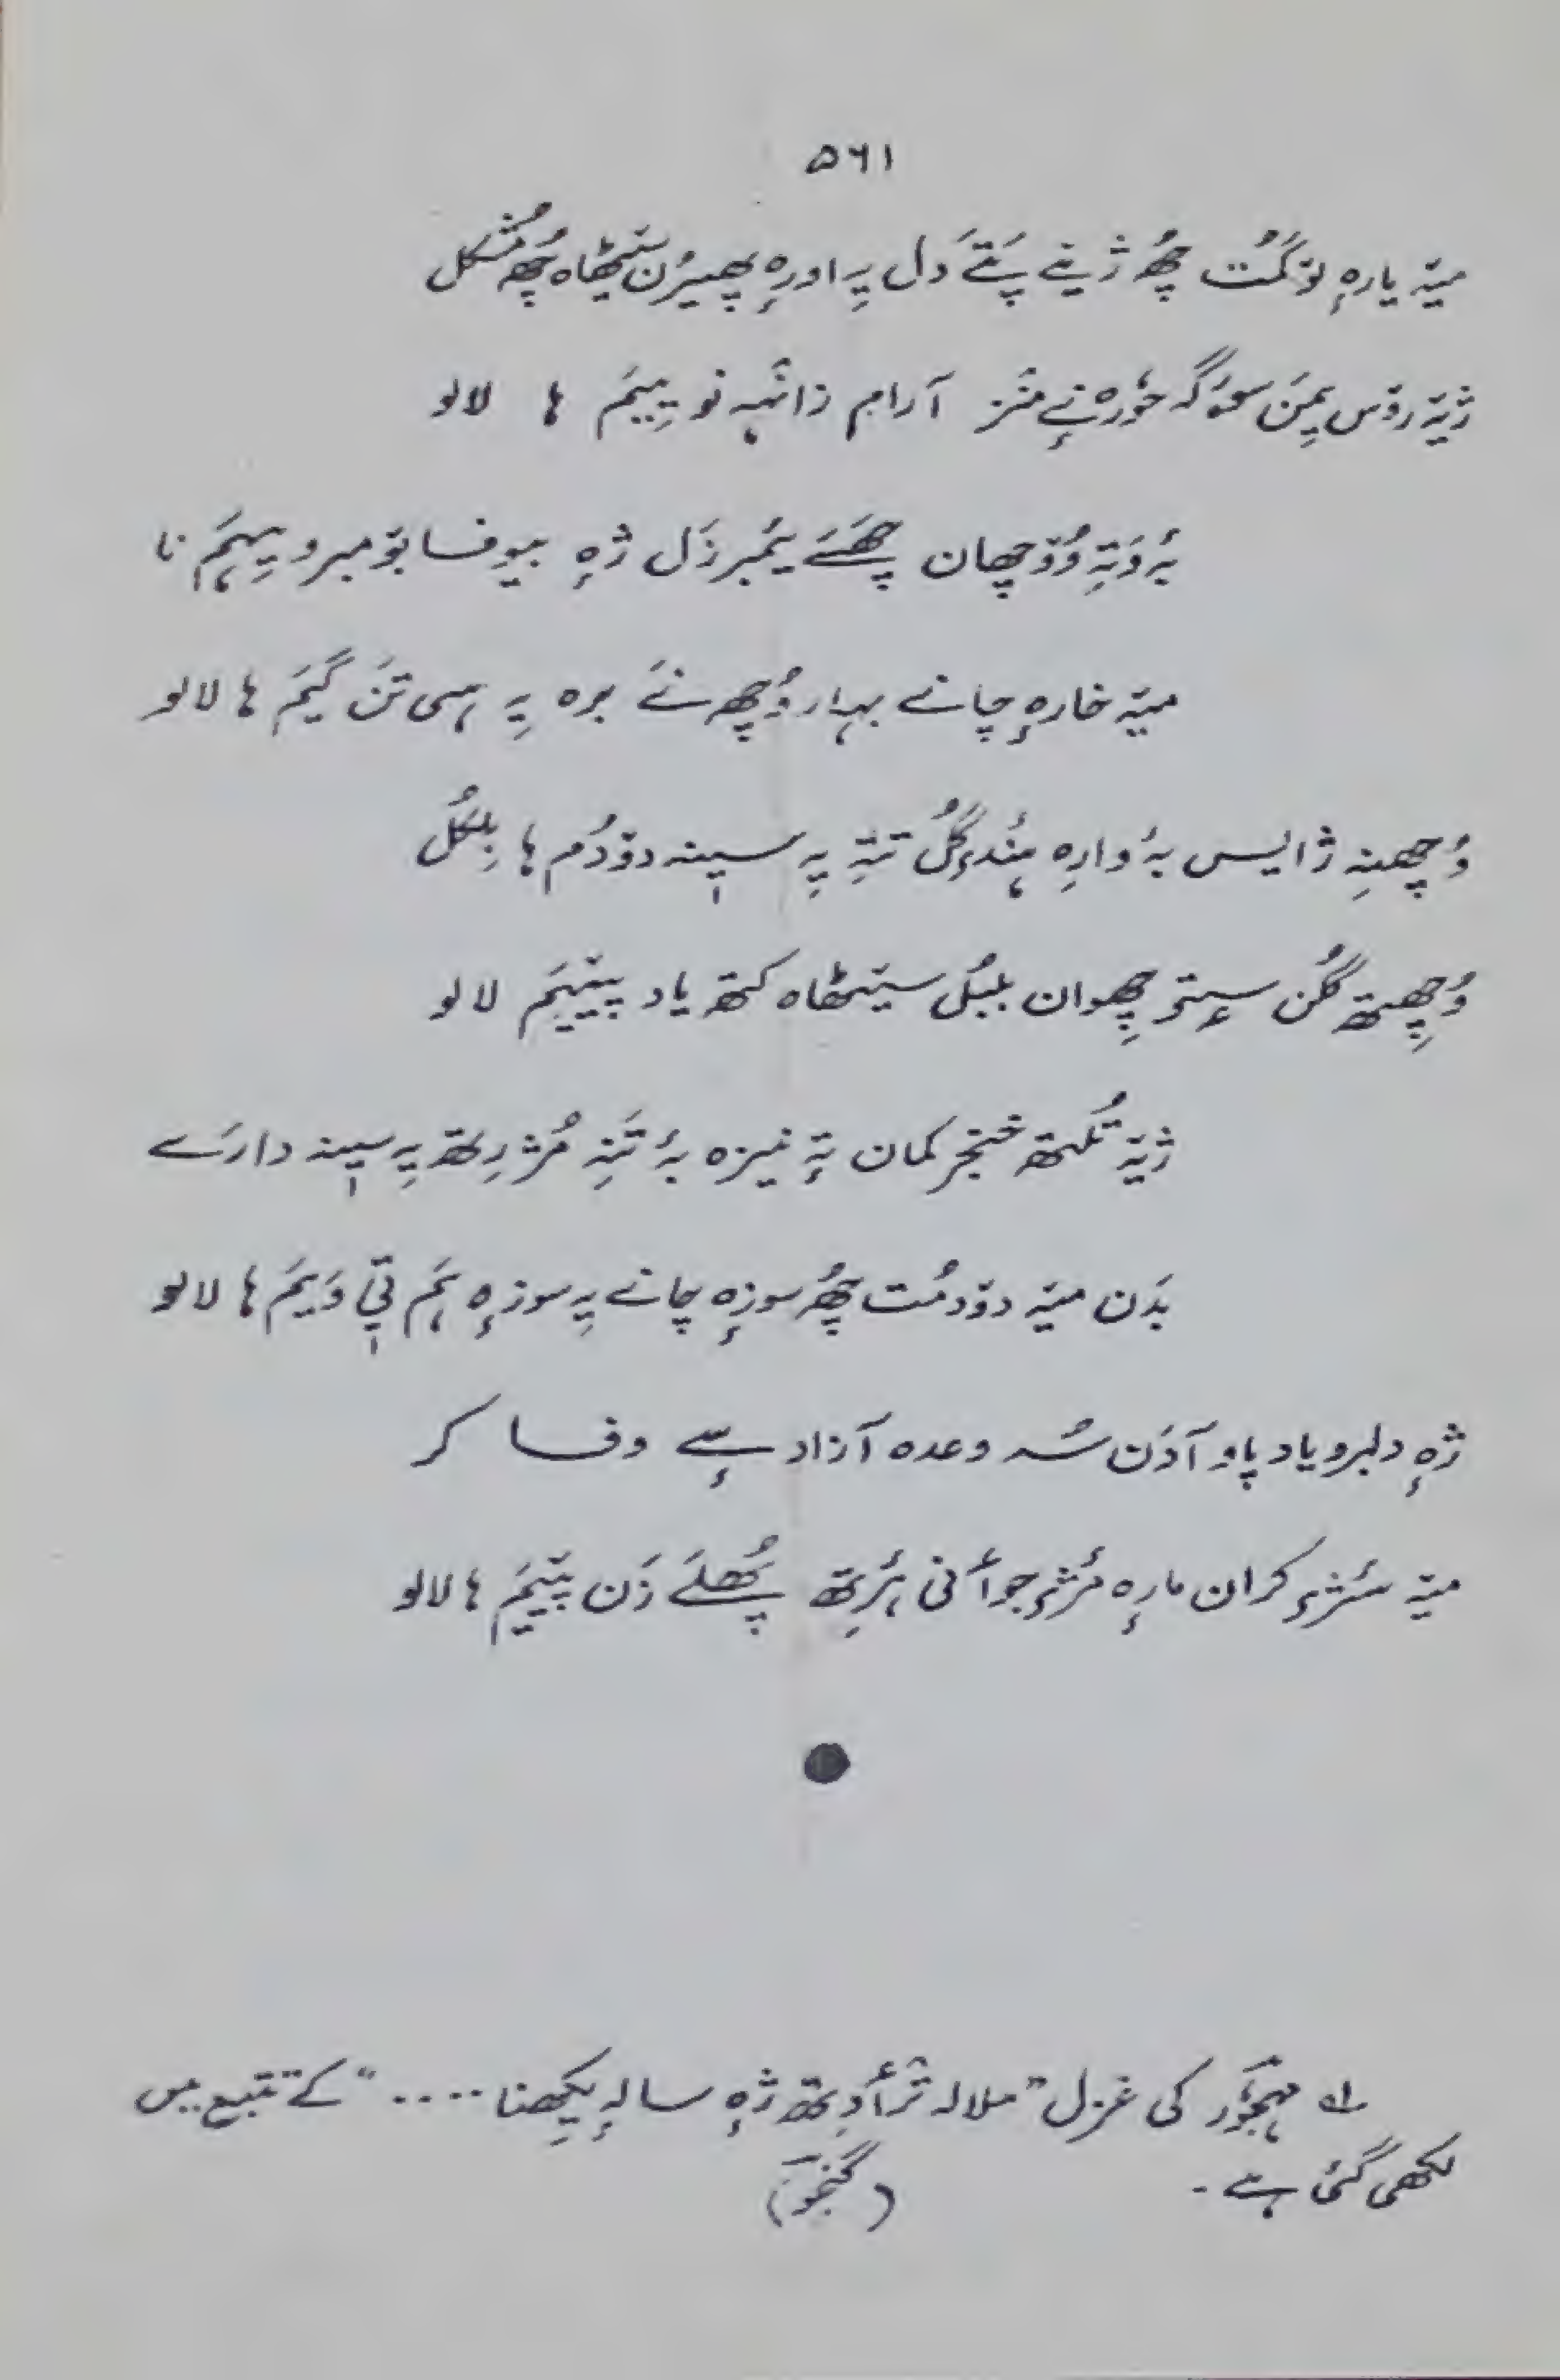 ۵۶۱
میٚہ یارہٕ نوٚگمُت چھُ ژٮ۪نے پَتَے دَل یہِ اورہٕ پھیرُن سٮ۪ٹھاہ چھُ مُشکل
ژیٚہ روٚس یِمَن آرام زانٛہہ نو یِیَم ہا لالو
بہٕ وَتہِ وُچھان چھَسَے یَمبرزَل ژہٕ بیوفا بومبرو یِہَم نا
میٚہ خارہٕ چانے بہار وُچھنَے برہ یہِ ہی تَن گیَم ہا لالو
وُچھنہِ ژایس بہٕ وارہِ ہُندِ گُل تتہِ یہِ سیٖنہ دوٚدُم ہا بِلکُل
وُچھِتھ گُلن سٟتۍ چھِوان بُلبُل سٮ۪ٹھاہ کتھ یاد پٮ۪یَم لالو
ژیٚہ تُلتھ خنجر کمان تہٕ نیزہ بہٕ تَنہِ مُژرِتھ یہِ سیٖنہ دارَے
بدَن میٚہ دوٚدمُت چھُ سوزہٕ چانے یہِ سوزہٕ ہَم تیٖ وَیَم ہا لالو
ژہٕ دلبرو یاد پاو آدَن سُہ وعدہ آزاد سٕے وفا کر
میٚہ کران مارہٕ مٔژ جوٲنی ۂرِتھ پھُلَے زَن پٮ۪یَم ہا لالو
لہ مہجوؔر کی غزل "ملالہ ترٲوِتھ ژہٕ سالہٕ یِکھنا ...." کے تتبع میں
لکھی گئی ہے۔ (گنجوؔ)